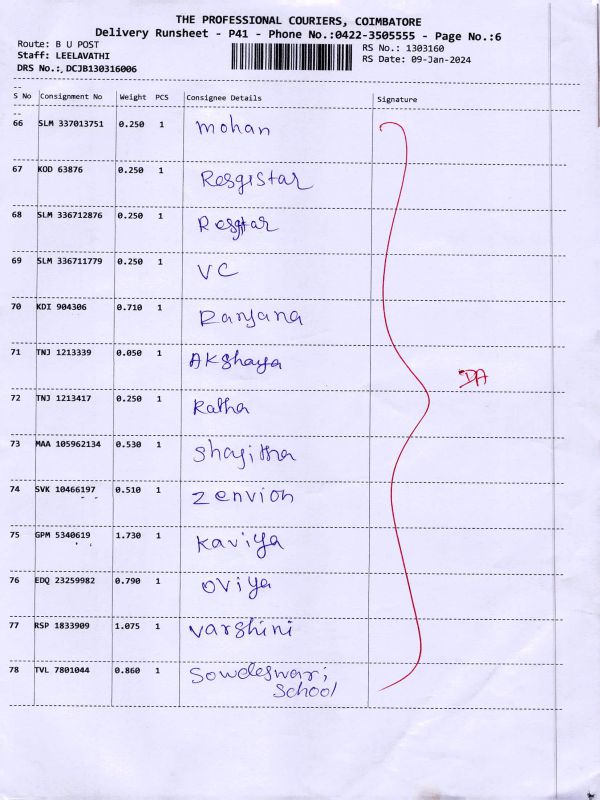 THE PROFESSIONAL COURIERS, COIMBATORE
Delivery Runsheet - P41 - Phone No.:0422-3505555 - Page No.:6
Route: B U POST
RS No.: 1303160
Staff: LEELAVATHI
RS Date: 09-Jan-2024
DRS No.:, DCJB130316006
S No Consignment No Weight PCS Consignee Details Signature
66 SLM 337013751 0.250 1 mohan
67 KOD 63876 0.250 1 Resgistar
68 SLM 336712876 0.250 1
69 SLM 336711779 0.250 1 VC
70 KDI 904306 0.710 1 Ranjana
71 TNJ 1213339 0.050 1 Akshaya
DA
72 TNJ 1213417 0.250 1 Ratha
73 MAA 105962134 0.530 1
74 SVK 10466197 0.510 1 Zenvion
75 GPM 5340619 1.730 1 Kaviya
76 EDQ 23259982 0.790 1 Oviya
77 RSP 1833909 1.075 1 Varshini
78 TVL 7801044 0.860 1 Sowdeswari
School